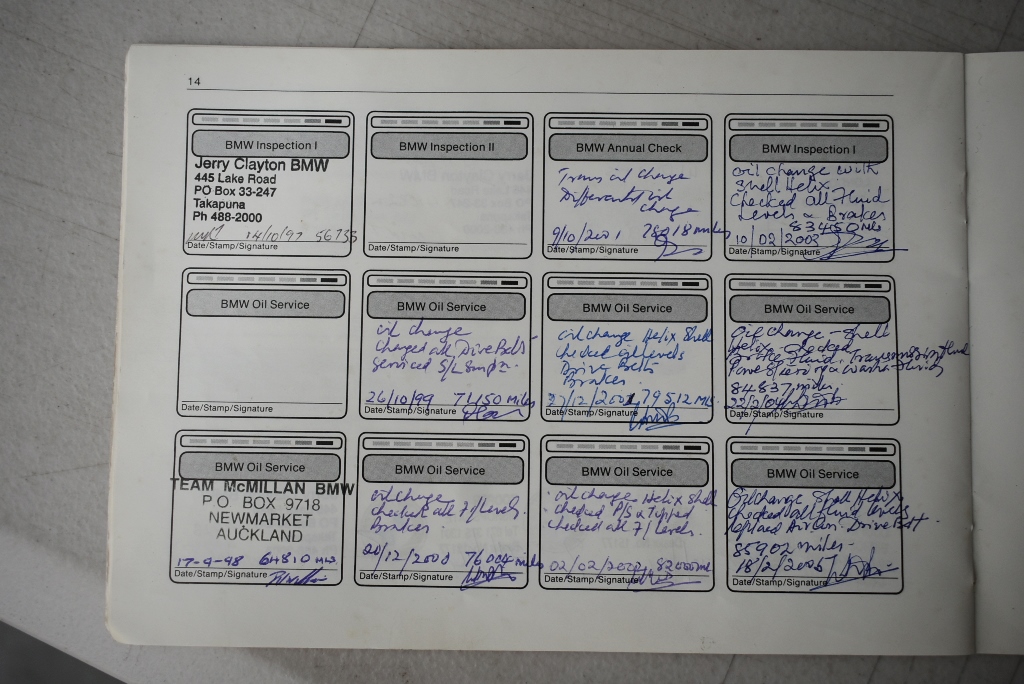 14
BMW Inspection I
Jerry Clayton BMW
445 Lake Road
PO Box 33-247
Takapuna
Ph 488-2000
14/10/97 56733
Date/Stamp/Signature
BMW Inspection II
Date/Stamp/Signature
BMW Annual Check
Trans oil change
Differential oil
change
9/10/2001 78018 miles
Date/Stamp/Signature
BMW Inspection I
oil change with
Shell Helix.
Checked all Fluid
Levels & Brakes
83450 mls
10/02/2003
Date/Stamp/Signature
BMW Oil Service
Date/Stamp/Signature
BMW Oil Service
oil change
Changed all Drive Belts
Serviced S/L
26/10/99 71,150 miles
Date/Stamp/Signature
BMW Oil Service
oil change Helix Shell
checked all levels
Drive Belts
Brakes
27/12/2001 79512 mls
Date/Stamp/Signature
BMW Oil Service
Oil Change - Shell
Helix - Checked
Brake Fluid, Transmission fluid
Power Steering & Washer fluids
84837 miles
22/2/04
Date/Stamp/Signature
BMW Oil Service
TEAM McMILLAN BMW
P O BOX 9718
NEWMARKET
AUCKLAND
17-9-98 64810 mls
Date/Stamp/Signature
BMW Oil Service
oil change
checked all 7/Levels.
Brakes
20/12/2000 76004 miles
Date/Stamp/Signature
BMW Oil Service
oil change Helix Shell
checked P/S & Topped
checked all 7/Levels.
02/02/ 82000 mls
Date/Stamp/Signature
BMW Oil Service
Oil Change Shell Helix
Checked all fluid levels
Drive Belt.
85902 miles
18/2/2005
Date/Stamp/Signature